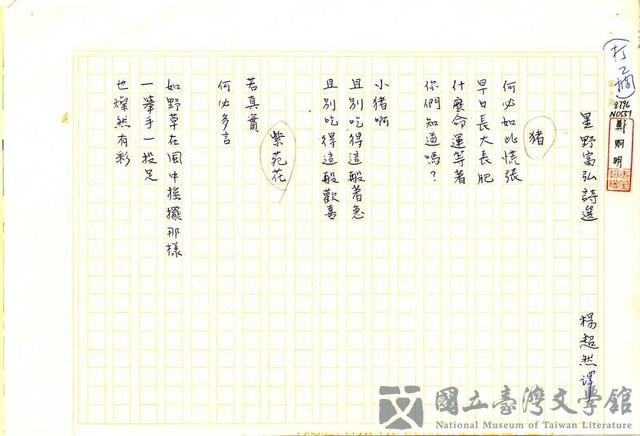 (打乙橺)
8796
N0551
鄭烱明
星野富弘詩選
楊超然譯
豬
何必如此慌張
早日長大長肥
什麼命運等著
你們知道嗎?
小豬啊
且別吃得這般著急
且別吃得這般歡喜
紫苑花
若真實
何必多言
如野草在風中搖擺那樣
一舉手一投足
也燦然有彩
國立臺灣文學館
National Museum of Taiwan Literature